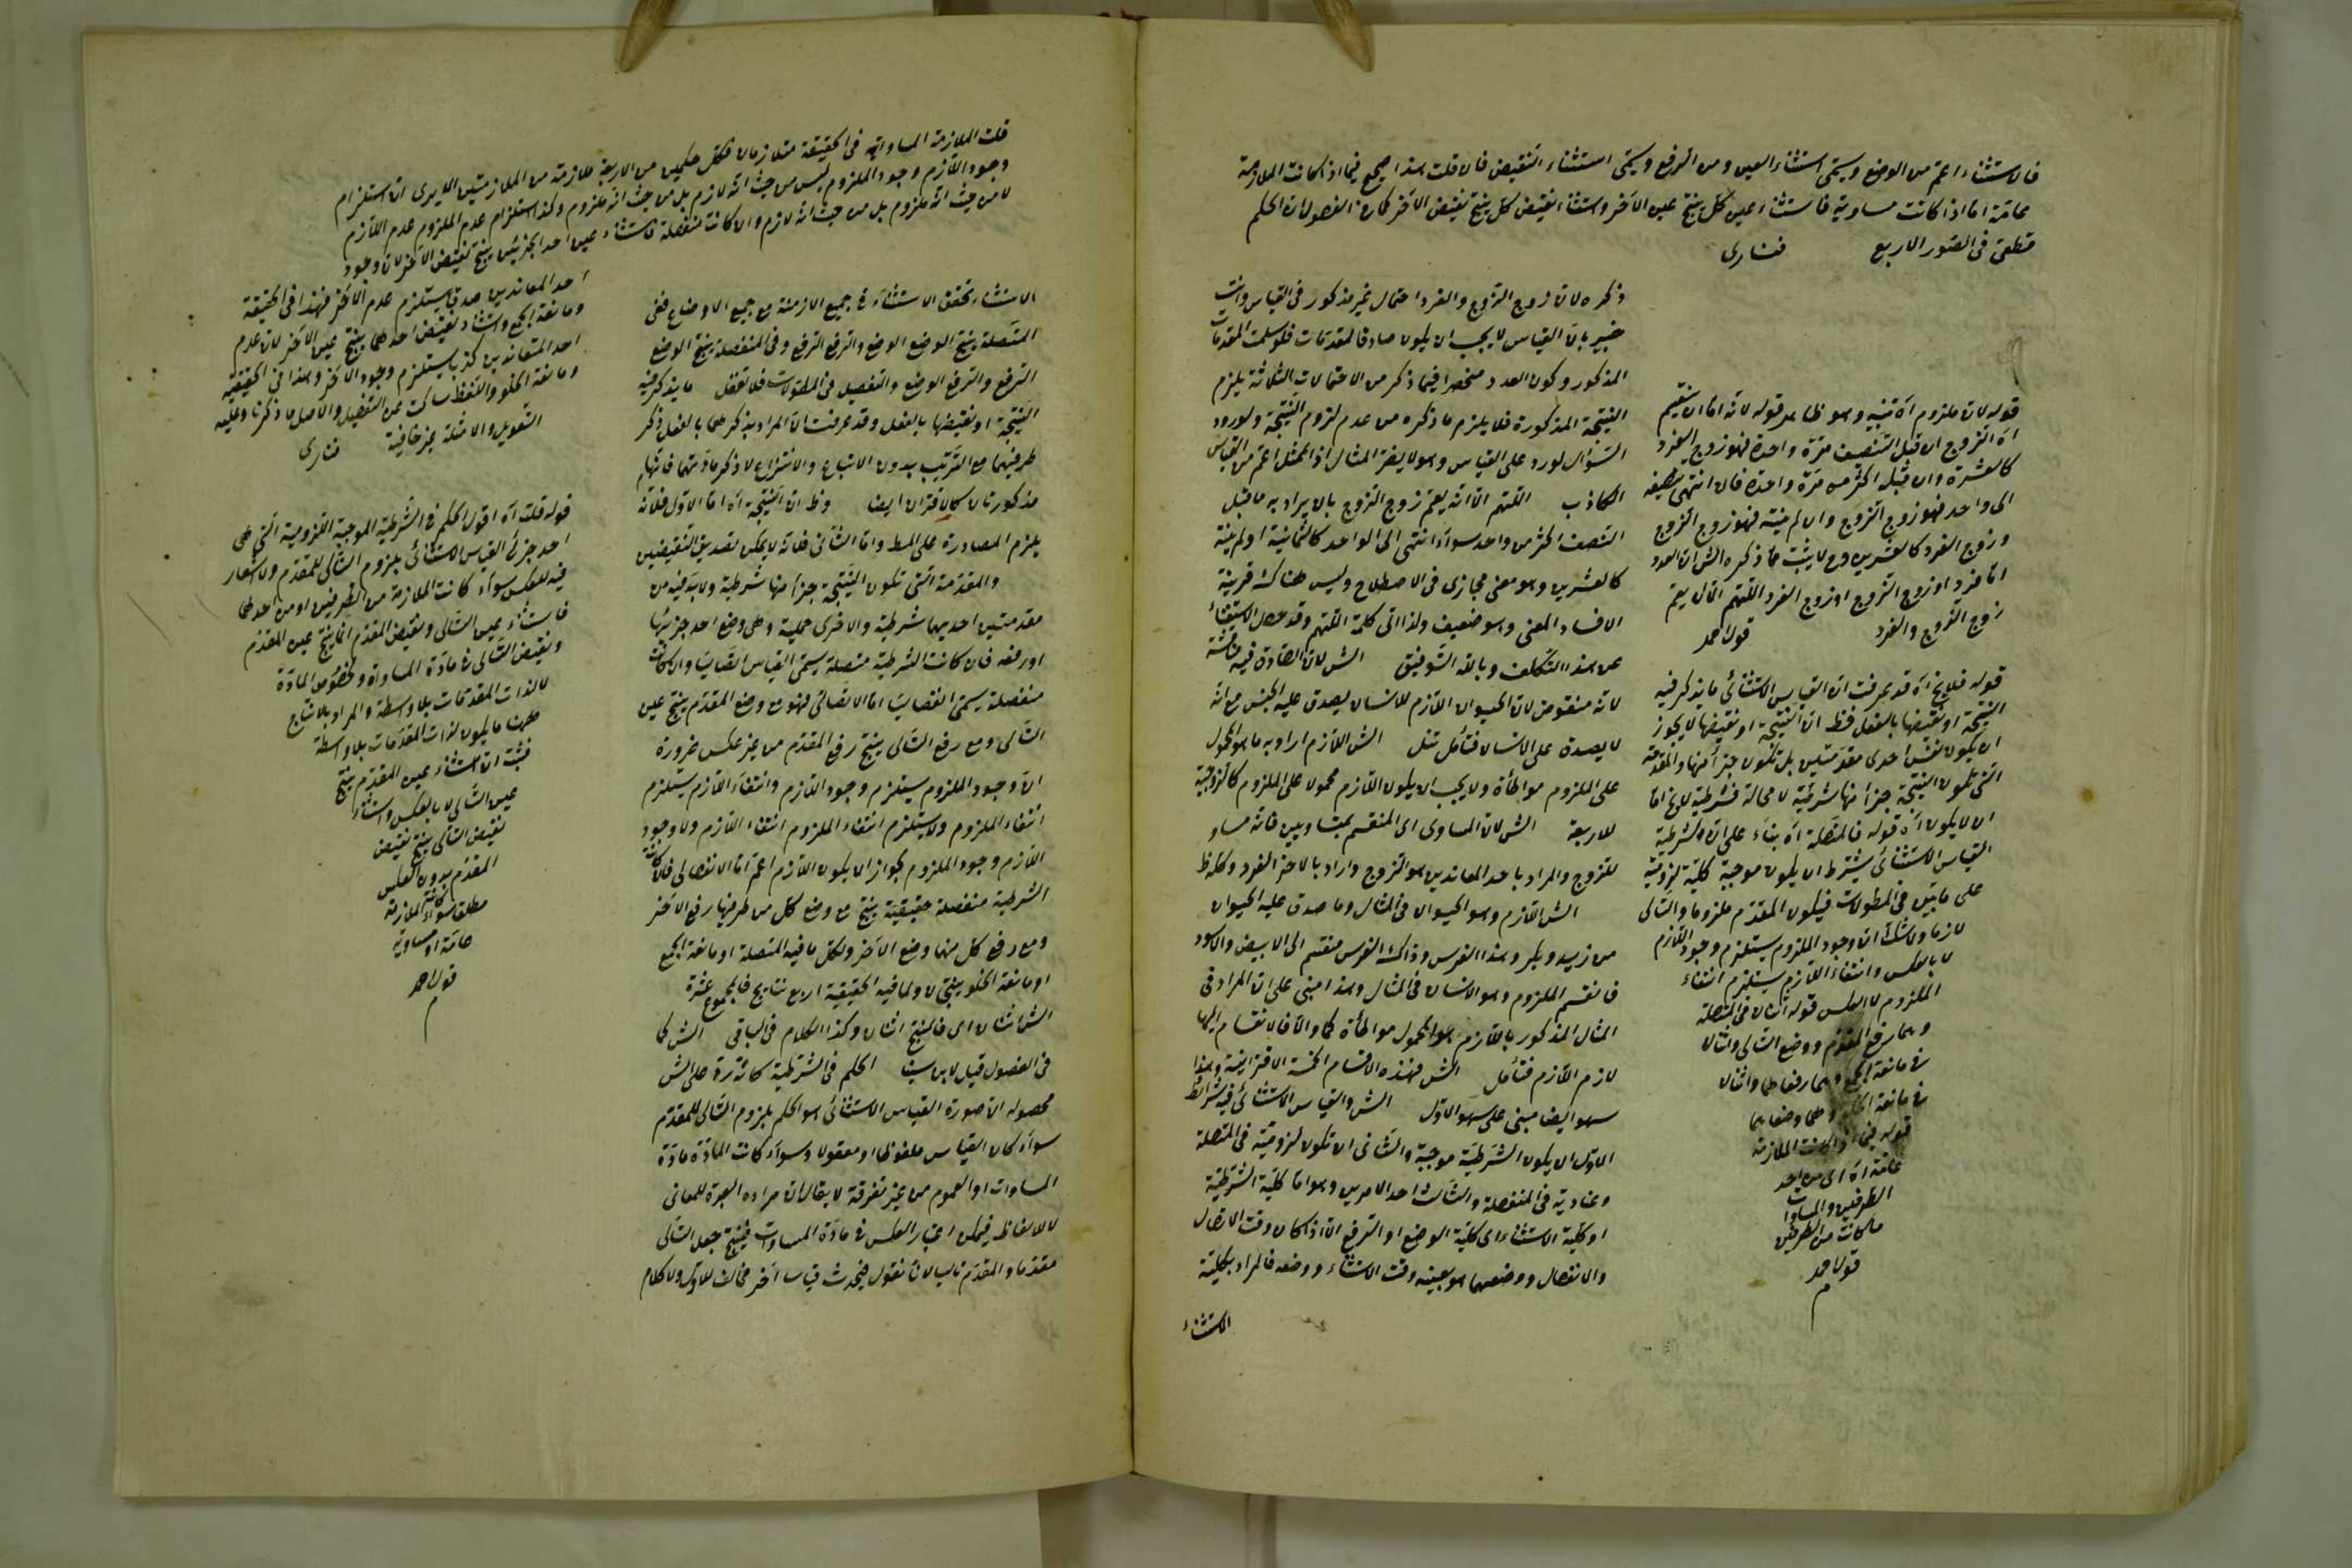 فالاستثناء اعم من الوضع ويسمى استثناء العين ومن الرفع ويسمى استثناء النقيض فان قلت هذا صحيح فيما اذا كانت الملازمة
عامة اما اذا كانت مساوية فاستثناء عين كل ينتج عين الآخر واستثناء نقيض كل ينتج نقيض الآخر كما في الفصول ان الحكم
قطعى فى الصور الاربع فنارى
ذكره لان زوج الزوج والفرد احتمال غير مذكور فى القياس وانت
خبير بان القياس لا يجب ان يكون صادق المقدمات فلو سلمت المقدمات
المذكور وكون العدد منحصرا فيما ذكر من الاحتمالات الثلاثة يلزم
النتيجة المذكورة فلا يلزم ما ذكره من عدم لزوم النتيجة ولورود
السؤال لورد على القياس وهو لا يضر المثال اذ الممثل اعم من القياس
الكاذب اللهم الا انه يعم زوج الزوج بان يراد به ما قبل
التنصف اكثر من واحد سواء انتهى الى الواحد كالثمانية او لم ينته
كالعشرين وهو معنى مجازى فى الاصطلاح وليس هناك قرينة
الا فساد المعنى وهو ضعيف ولذا اتى كلمة اللهم وقد حصل الاستغناء
عن هذا التكلف وبالله التوفيق الش لان الصادق فيه مناقشة
لانه منقوض لان الحيوان اللازم للانسان يصدق عليه الجنس مع انه
لا يصدق على الانسان فتأمل تنل الش اللازم اراد به ما هو المحمول
على الملزوم مواطأة ولا يجب ان يكون اللازم محمولا على الملزوم كالزوجية
للاربعة الش لان المساوى اى المنقسم بمتساويين فانه مساو
للزوج والمراد باحد المعاندين هو الزوج واراد بالاخر الفرد وكلفظ
الش اللازم وهو الحيوان فى المثال وما صدق عليه الحيوان
من زيد وبكر وهذا الفرس وذاك الفرس منقسم الى الابيض والاسود
فانقسم الملزوم وهو الانسان فى المثال وهذا مبنى على ان المراد فى
المثال المذكور باللازم هو المحمول مواطأة كما والا فالانقسام اليها
لازم اللازم فتأمل الش فهذه الاقسام الخمسة الاقترانية وهذا
سهو ايضا مبنى على سهو الاول الش والقياس الاستثنائى فيه شرائط
الاول ان يكون الشرطية موجبة والثانى ان تكون لزومية فى المتصلة
وعنادية فى المنفصلة والثالث احد الامرين وهو اما كلية الشرطية
او كلية الاستثناء اى كلية الوضع او الرفع الا اذا كان وقت الاتصال
والانفصال ووضعهما هو بعينه وقت الاستثناء ووضعه فالمراد بكلية
الاستثناء
قوله لان ملزوم آه تنبيه وهو ظاهر قوله لانه اما ان ينقسم
آه الزوج ان قبل التنصف مرة واحدة فهو زوج الفرد
كالعشرة وان قبله اكثر من مرة واحدة فان انتهى تنصيفه
الى واحد فهو زوج الزوج وان لم ينته فهو زوج الزوج
وزوج الفرد كالعشرين وح لا يثبت ما ذكره الش ان العدد
اما فرد او زوج الزوج او زوج الفرد اللهم الا ان يعم
زوج الزوج والفرد قول احمد
قوله فلا يخ آه قد عرفت ان القياس الاستثنائى ما يذكر فيه
النتيجة او نقيضها بالفعل فظ ان النتيجة او نقيضها لا يجوز
ان يكون نفس احدى مقدمتين بل تكون جزأ منها والمقدمة
التى تكون النتيجة جزأ منها شرطية لا محالة فشرطية لا يخ اما
ان لا يكون آه قوله فالمتصلة آه بناء على ان الشرطية
القياس الاستثنائى يشترط ان يكون موجبة كلية لزومية
على ما بين فى المطولات فيكون المقدم ملزوما والتالى
لازما ولا شك ان وجود الملزوم يستلزم وجود اللازم
لا بالعكس وانتفاء اللازم يستلزم انتفاء
الملزوم لا العكس قوله اثنان فى المتصلة
وهما رفع المقدم ووضع التالى واثنان
فى مانعة الجمع وهما رفعاهما واثنان
فى مانعة الخلو وهما وضعاهما
قوله فيما اذا كانت الملازمة
عامة آه اى من احد
الطرفين والمساوات
ما كانت من الطرفين
قول احمد
قلت الملازمة المساواتية فى الحقيقة متلازمان فكل حكمين من الاربعة ملازمة من الملازمتين الا يرى ان استلزام
وجود اللازم وجود الملزوم ليس من حيث انه لازم بل من حيث انه ملزوم وكذا استلزام عدم الملزوم عدم اللازم
لا من حيث انه ملزوم بل من حيث انه لازم وان كانت منفصلة فاستثناء عين احد الجزئين ينتج نقيض الآخر لان وجود
احد المعاندين صدقا يستلزم عدم الآخر فهذا فى الحقيقة
ومانعة الجمع واستثناء نقيض احدهما ينتج عين الآخر لان عدم
احد المتعاندين كذبا يستلزم وجود الآخر وهذا فى الحقيقية
ومانعة الخلو واللفظ ساكت عن التفصيل والاصل ما ذكرنا وعليه
التعويل والامثلة غير خافية فنارى
الاستثناء تحقق الاستثناء فى جميع الازمنة مع جميع الاوضاع ففى
المتصلة ينتج الوضع الوضع والرفع الرفع وفى المنفصلة ينتج الوضع
الرفع والرفع الوضع والتفصيل فى المطولات فلا تغفل ما يذكر فيه
النتيجة او نقيضها بالفعل وقد عرفت ان المراد بذكرهما بالفعل ذكر
طرفيهما مع الترتيب بدون الايقاع والانتزاع لا ذكر مادتهما فانها
مذكورتان كالاقتران ايضا وظ ان النتيجة آه اما الاول فلانه
يلزم المصادرة على المط واما الثانى فلانه لا يمكن تصديق النقيضين
والمقدمة التى تكون النتيجة جزأ منها شرطية ولا بد فيه من
مقدمتين احديهما شرطية والاخرى حملية وهى وضع احد جزئيها
او رفعه فان كانت الشرطية متصلة يسمى القياس اتصاليا وان كانت
منفصلة يسمى انفصاليا اما الاتصالى فهو مع وضع المقدم ينتج عين
التالى ومع رفع التالى ينتج رفع المقدم من غير عكس ضرورة
ان وجود الملزوم يستلزم وجود اللازم وانتفاء اللازم يستلزم
انتفاء الملزوم ولا يستلزم انتفاء الملزوم انتفاء اللازم ولا وجود
اللازم وجود الملزوم لجواز ان يكون اللازم اعم اما الانفصالى فان كانت
الشرطية منفصلة حقيقية ينتج مع وضع كل من طرفيها رفع الآخر
ومع رفع كل منها وضع الآخر ولكل ما فيه المتصلة او مانعة الجمع
او مانعة الخلو ينتجان ولما فيه الحقيقية اربع نتايج فالمجموع عشرة
الش اثنان اى فالمنتج اثنان وكذا الكلام فى الباقى الش كما
فى الفصول قيل لابن سينا الحكم فى الشرطية كائنة رد على الش
محصوله ان صورة القياس الاستثنائى هو الحكم بلزوم التالى للمقدم
سواء كان القياس ملفوظا او معقولا وسواء كانت المادة مادة
المساوات او العموم من غير تفرقة لا يقال ان مراده العبرة للمعانى
لا للالفاظ فيمكن اعتبار العكس فى مادة المساوات فينتج جعل التالى
مقدما والمقدم تاليا لانا نقول فيحدث قياسا آخر مخالف للاول ولا كلام
قوله قلت آه اقول الحكم فى الشرطية الموجبة اللزومية التى هى
احد جزئى القياس الاستثنائى بلزوم التالى للمقدم ولا اشعار
فيه للعكس سواء كانت الملازمة من الطرفين او من احدهما
فاستثناء عين التالى ونقيض المقدم انما ينتج عين المقدم
ونقيض التالى فى مادة المساواة وبخصوص المادة
لا لذات المقدمات بلا واسطة والمراد بالانتاج
ههنا ما يكون لذات المقدمات بلا واسطة
فثبت ان استثناء عين المقدم ينتج
عين التالى لا بالعكس واستثناء
نقيض التالى ينتج نقيض
المقدم بدون العكس
مطلقا سواء كانت الملازمة
عامة او مساوية
قول احمد